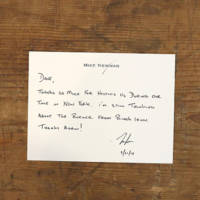 MIKE NEWMAN
Dave,
Thanks so much for having us during our
time in New York. I'm still thinking
about the burger from
Thanks again!